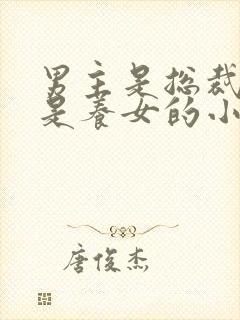 男主是总裁
是养女的小
唐俊杰